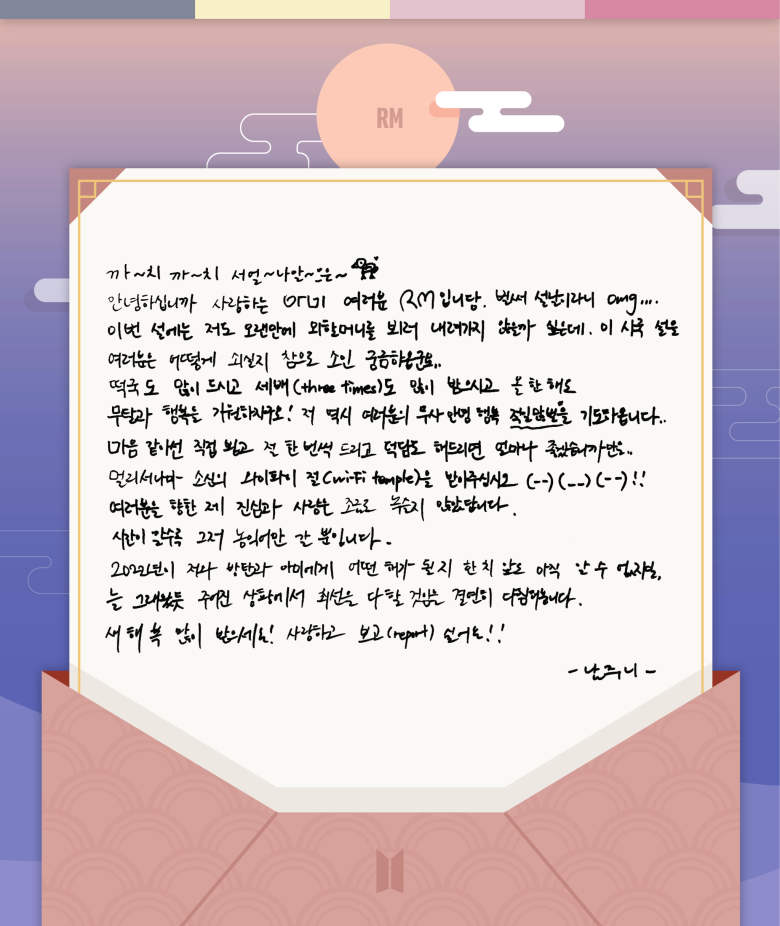 RM
까~치 까~치 서얼~나안~으은~
안녕하십니까 사랑하는 아미 여러분 RM입니당. 벌써 설날이라니 omg....
이번 설에는 저도 오랜만에 외할머니를 뵈러 내려가지 않을까 싶은데. 이 시국 설을
여러분은 어떻게 쇠실지 참으로 소인 궁금하옵군요..
떡국도 많이 드시고 세배(three times)도 많이 받으시고 올 한 해도
무탈과 행복을 기원하지구요! 저 역시 여러분의 무사 안녕 행복 기도하옵니다..
마음 같아선 직접 뵙고 절 한 번씩 드리고 덕담도 해드리면 얼마나 좋겠습니까만은..
멀리서나마 소신의 와이파이 절(wi-Fi temple)을 받아주십시오 (--)(__)(--)!!
여러분을 향한 제 진심과 사랑은 조금도 녹슬지 않았답니다.
시간이 갈수록 그저 농익어만 갈 뿐입니다.
2022년이 저와 방탄과 아미에게 어떤 해가 될지 한 치 앞도 아직 알 수 없지만,
늘 그래왔듯 주어진 상황에서 최선을 다할 것임은 결연히 다짐해봅니다.
새해 복 많이 받으세요! 사랑하고 보고(report) 싶어요!!
- 남주니 -